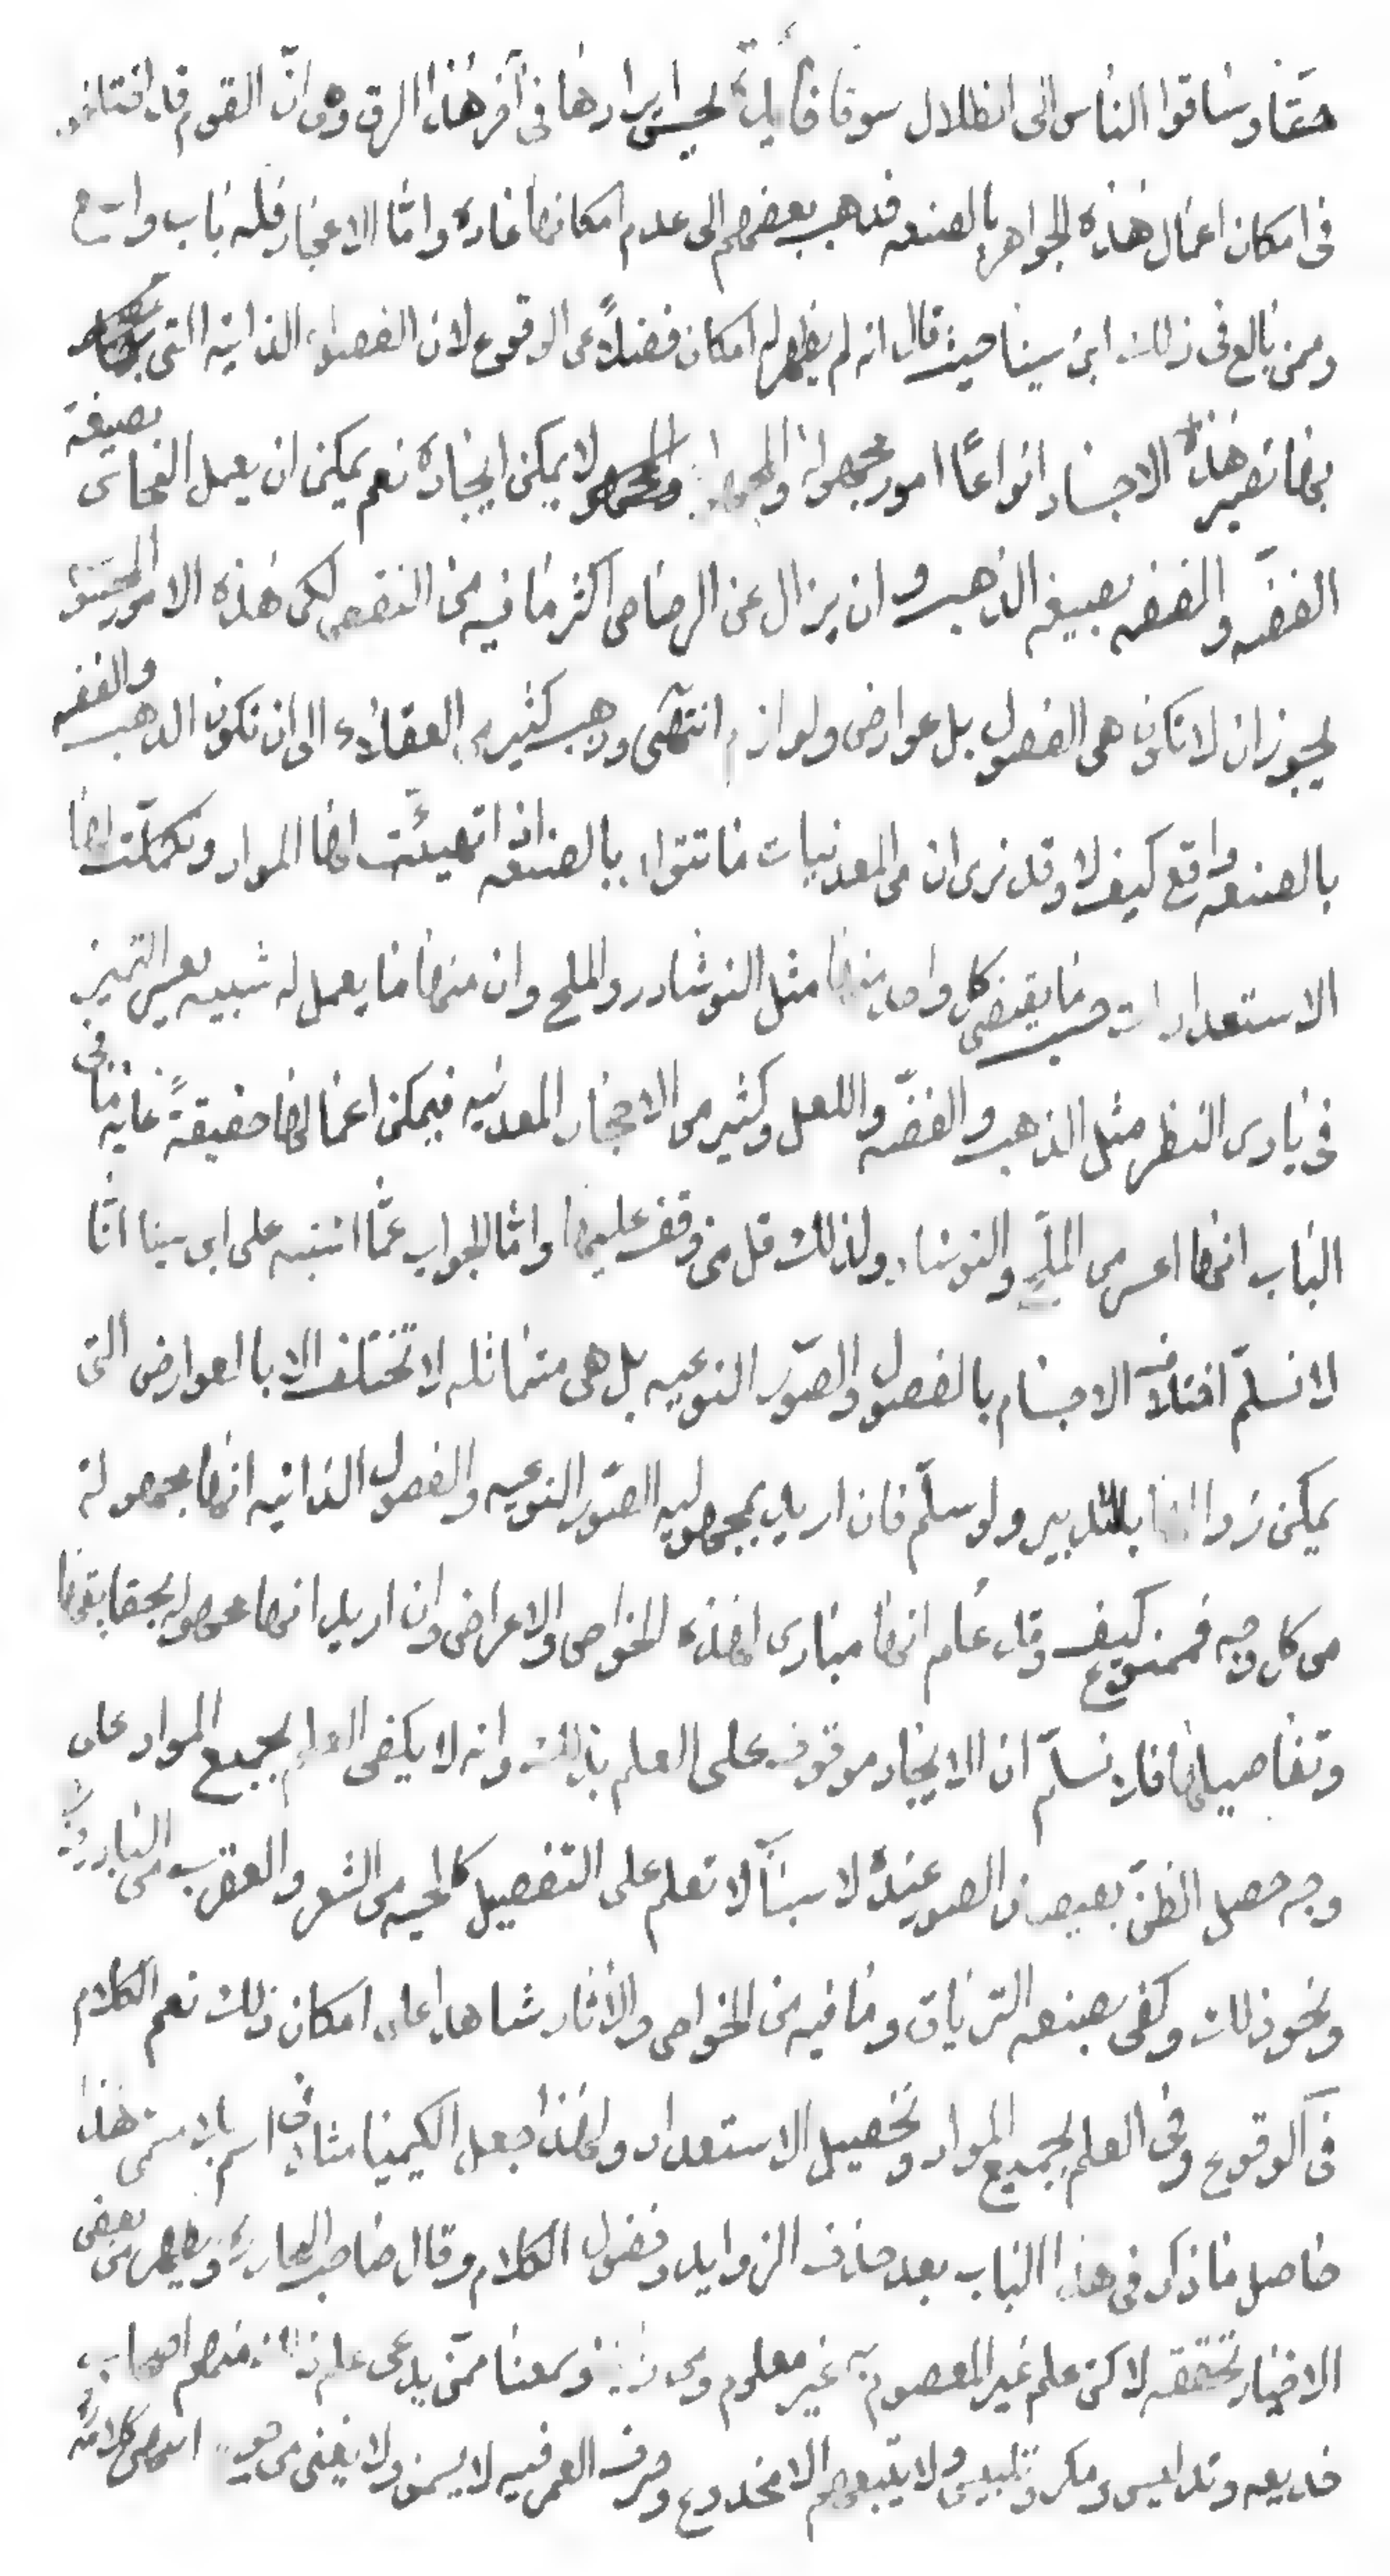 حقا وساقوا الناس الى الضلال سوقا فايدة يحسن ايرادها فى آخر هذا الرق وهى انّ القوم قد اختلفوا
فى امكان اعمال هذه الجواهر بالصنعه فذهب بعضهم الى عدم امكانها عادة واما الاعجاز فله باب واسع
وممن بالغ فى ذلك ابن سينا حيث قال انه لم يظهر لى امكان فضلاً عن الوقوع لان الفصول الذاتيه التى
بها تصير هذه الاجساد انواعًا امور مجهولة والمجهول لا يمكن ايجاده نعم يمكن ان يعمل النحاس بصبغة
الفضّه والفضه بصبغه الذهب وان يزال عن الرصاص اكثر ما فيه من النقص لكن هذه الامور المحسوسة
يجوز ان لا تكون هى الفصول بل عوارض ولوازم انتهى وذهب كثير من العقلاء الى ان تكون الذهب والفضه
بالصنعه واقع كيف لا وقد نرى ان من المعدنيات ما تتولد بالصنعه اذا تهيئت لها المواد وتكملت لها
الاستعدادات حسب ما يقتضى كل واحد منها مثل النوشادر والملح وان منها ما يعمل له شبيه يعسر التميز
فى بادى النظر مثل الذهب والفضّه واللعل وكثير من الاحجار المعدنيه فيمكن اعمالها حقيقةً غاية ما فى
الباب انها اعسر من الملح والنوشادر ولذلك قل من وقف عليها واما الجواب عمّا اشتبه على ابن سينا انّا
لا نسلّم اختلاف الاجسام بالفصول والصوّر النوعيه بل هى متماثله لا تختلف الا بالعوارض التى
يمكن زوالها بالتدبير ولو سلّم فان اريد بمجهوليه الصوّر النوعيه والفصول الذاتيه انها مجهولة
من كل وجه فممنوع كيف وقد علم انها مبادى لهذه الخواص والاعراض وان اريد انها مجهوله بحقايقها
وتفاصيلها فلا نسلّم ان الايجاد موقوف على العلم بذلك وانه لا يكفى العلم بجميع المواد على
وجه حصل الظنّ بفيضان الصور عنده لاسباب لا تعلم على التفصيل كالحيه من الشعر والعقرب من البادروج
ونحو ذلك وكفى بصنعه الترياق وما فيه من الخواص والاثار شاهدا على امكان ذلك نعم الكلام
فى الوقوع وفى العلم بجميع المواد وتحصيل الاستعداد ولهذا جعل الكيميا مثلا فى اسم بلا مسمى هذا
حاصل ما ذكر فى هذا الباب بعد حذف الزوايد وفضول الكلام وقال صاحب البحار ره ويظهر من بعض
الاخبار تحققه لاكن علم غير المعصوم به غير معلوم ومن وسمعنا ممّن يدعى علم ذلك منهم اصحاب
خديعه وتدليس ومكر وتلبيس ولا يتبعهم الا مخدوع وصرف العمر فيه لا يسمن ولا يغنى من جوع انتهى كلامه